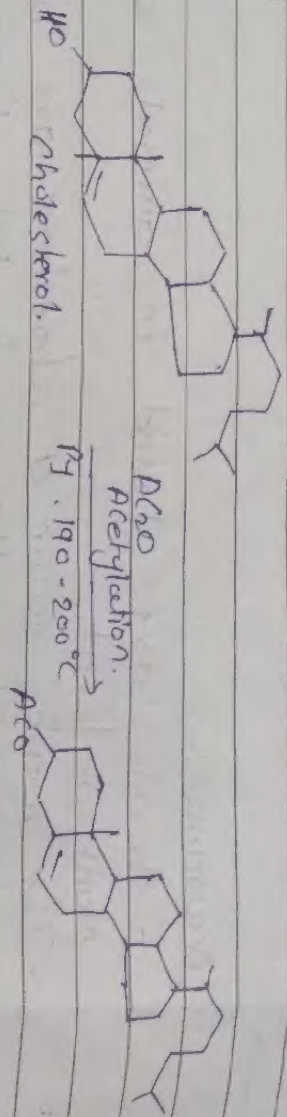 HO
Cholesterol.
Ac₂O
Acetylation.
Py . 190 - 200°C
AcO